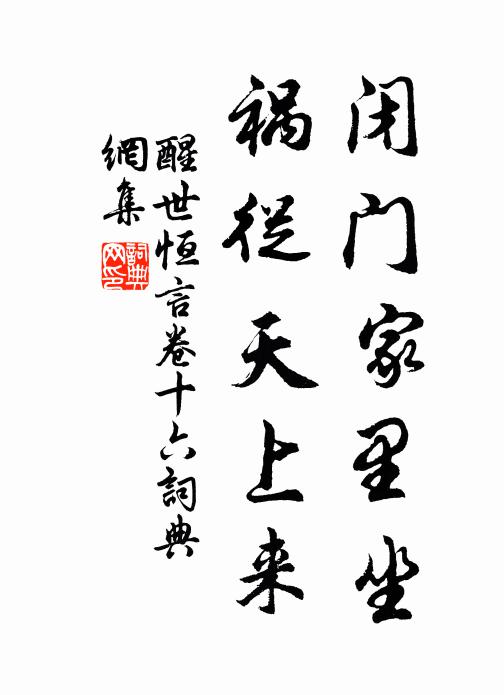 闭门家里坐
祸從天上来
醒世恒言卷十六詞典
網集
詞典
网印